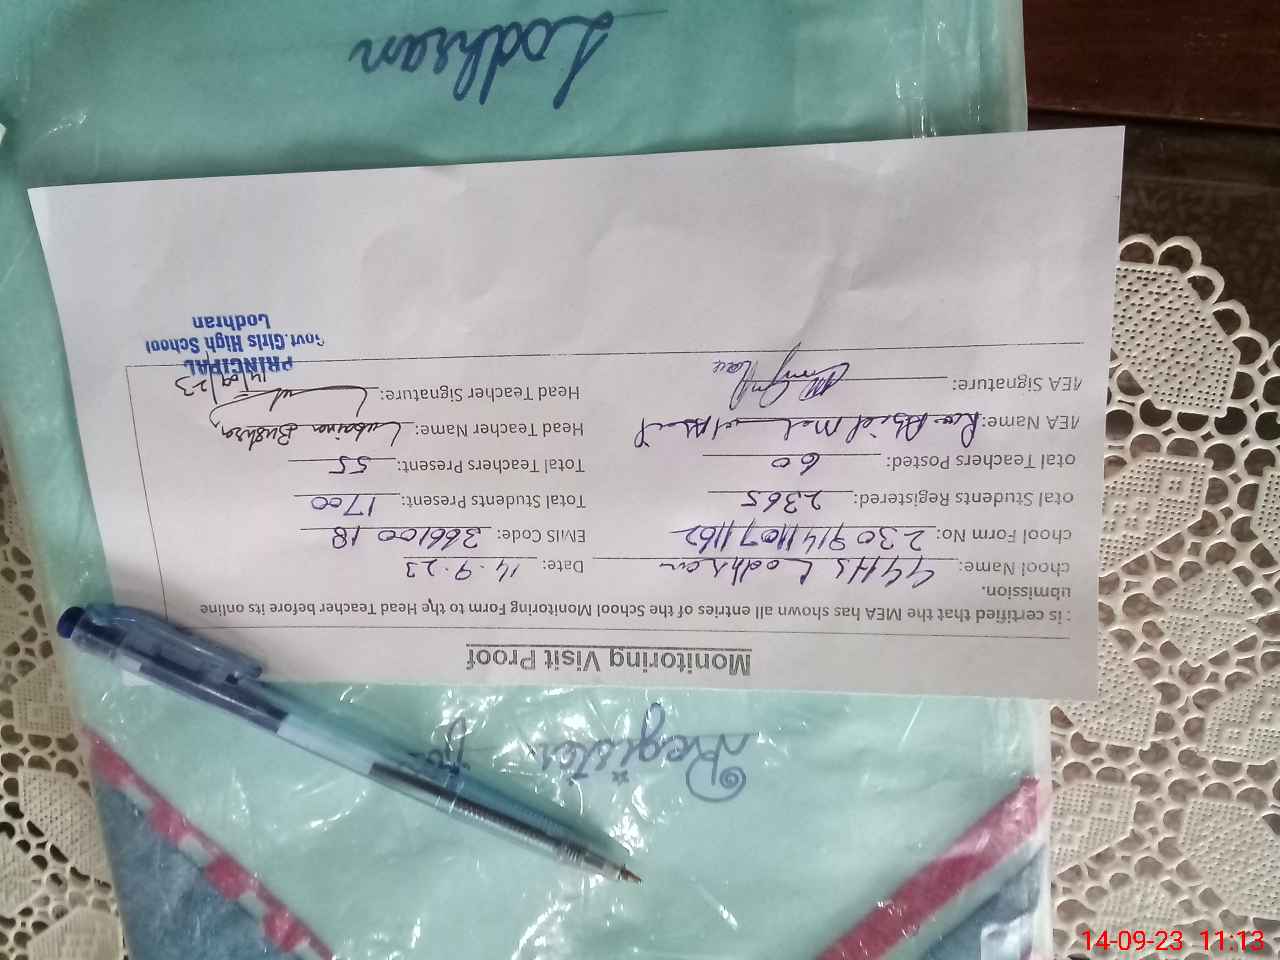 Register
Monitoring Visit Proof
: is certified that the MEA has shown all entries of the School Monitoring Form to the Head Teacher before its online
ubmission.
chool Name: GGHS Lodhran Date: 14.9.23
chool Form No: 23091411071162 EMIS Code: 36610018
otal Students Registered: 2365 Total Students Present: 1700
otal Teachers Posted: 60 Total Teachers Present: 55
MEA Name: Rao Head Teacher Name: Lubaina Bushra
MEA Signature: Head Teacher Signature: 14/09/23
PRINCIPAL
Govt.Girls High School
Lodhran
Lodhran
14-09-23 11:13